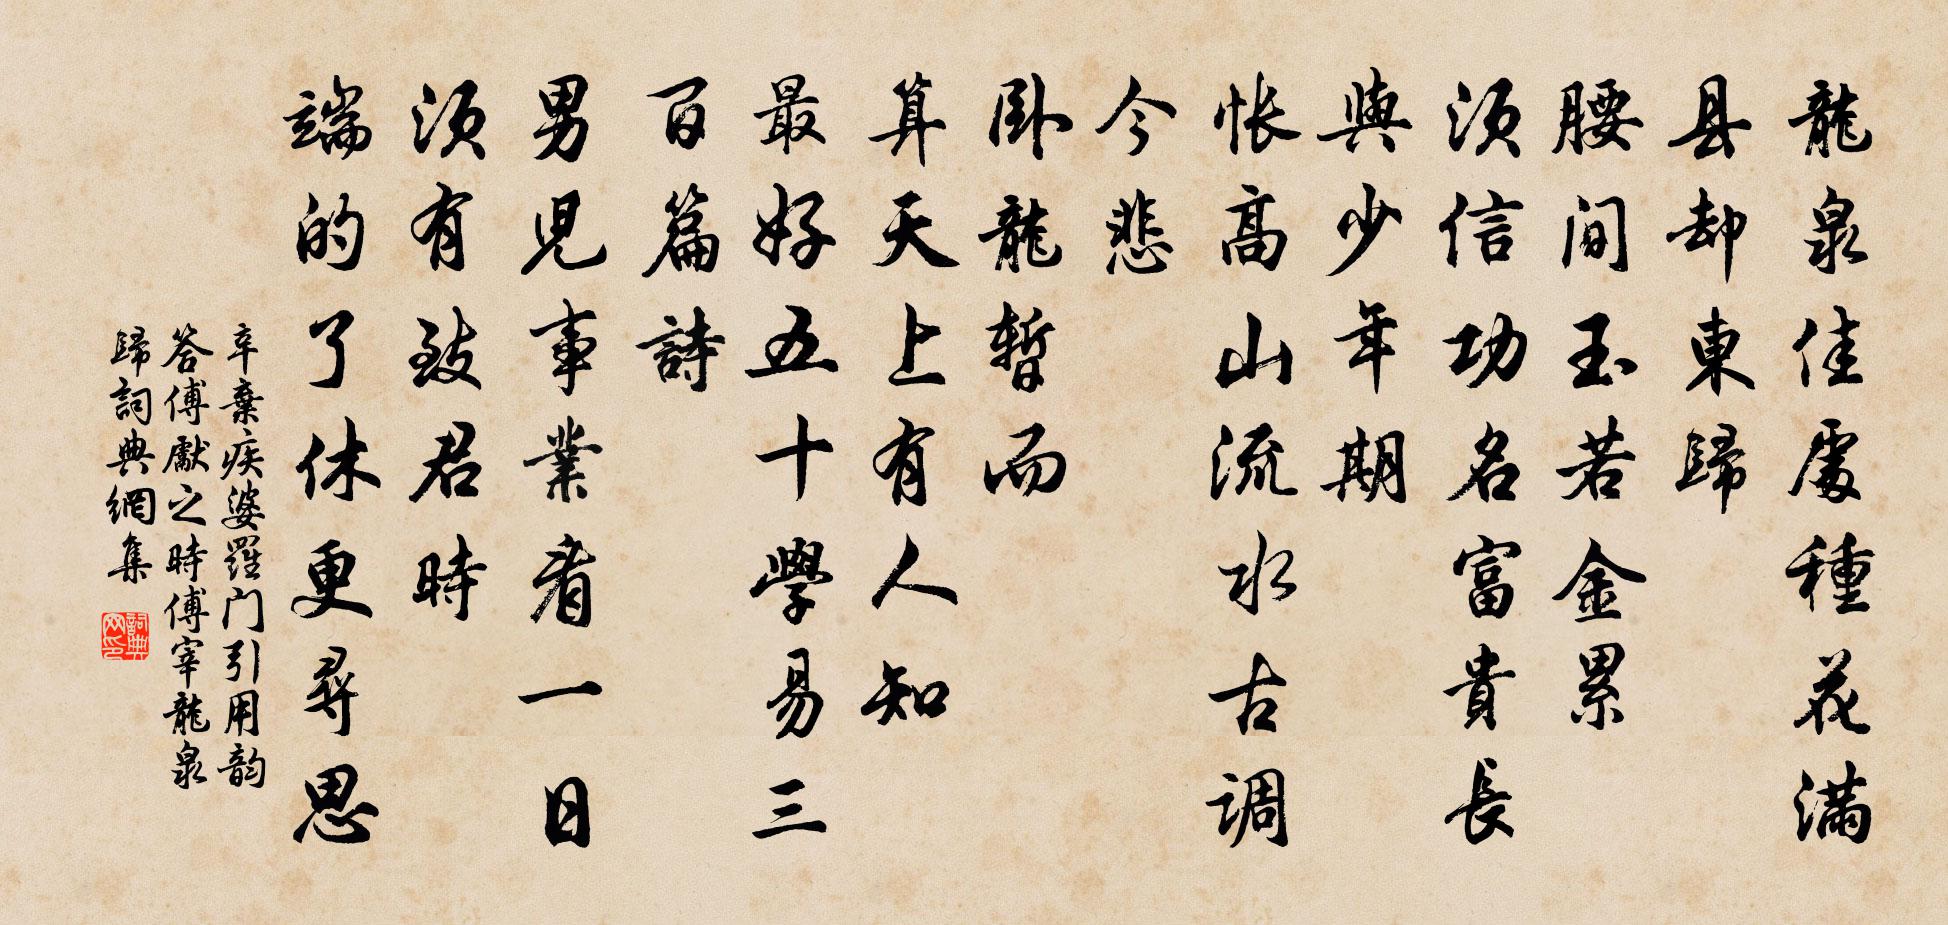 龍泉佳處種花滿
县却東歸
腰间玉若金累
须信功名富貴長
與少年期
怅高山流水古调
今悲
卧龍暫而
算天上有人知
最好五十學易三
百篇詩
男児事業看一日
须有致君時
端的了休更尋思
辛棄疾婆羅门引用韵
答傅獻之時傅宰龍泉
歸詞典網集
詞典网印